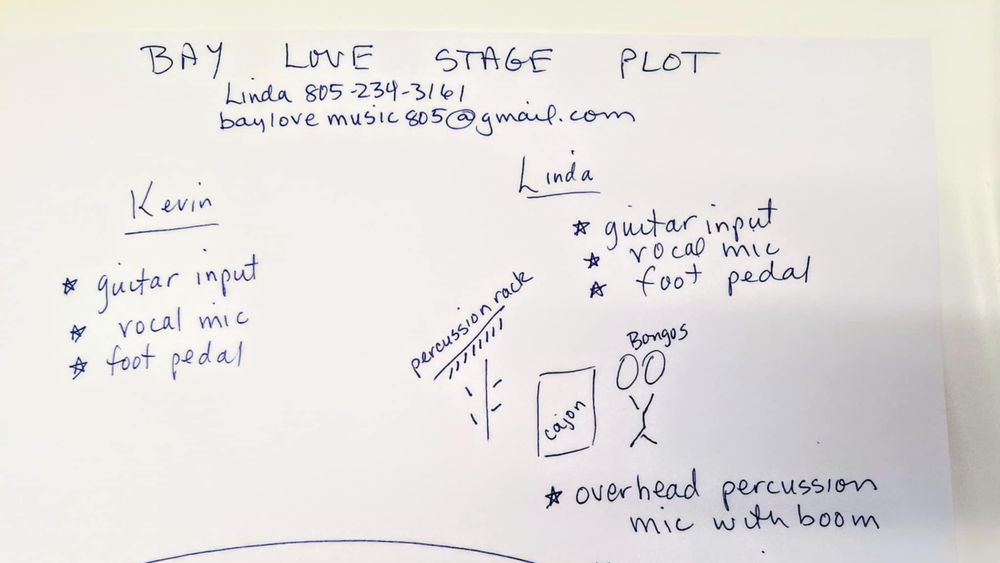 BAY LOVE STAGE PLOT
Linda 805-234-3161
baylovemusic805@gmail.com
Kevin
★ guitar input
★ vocal mic
★ foot pedal
Linda
★ guitar input
★ vocal mic
★ foot pedal
percussion rack
Bongos
cajon
★ overhead percussion
mic with boom